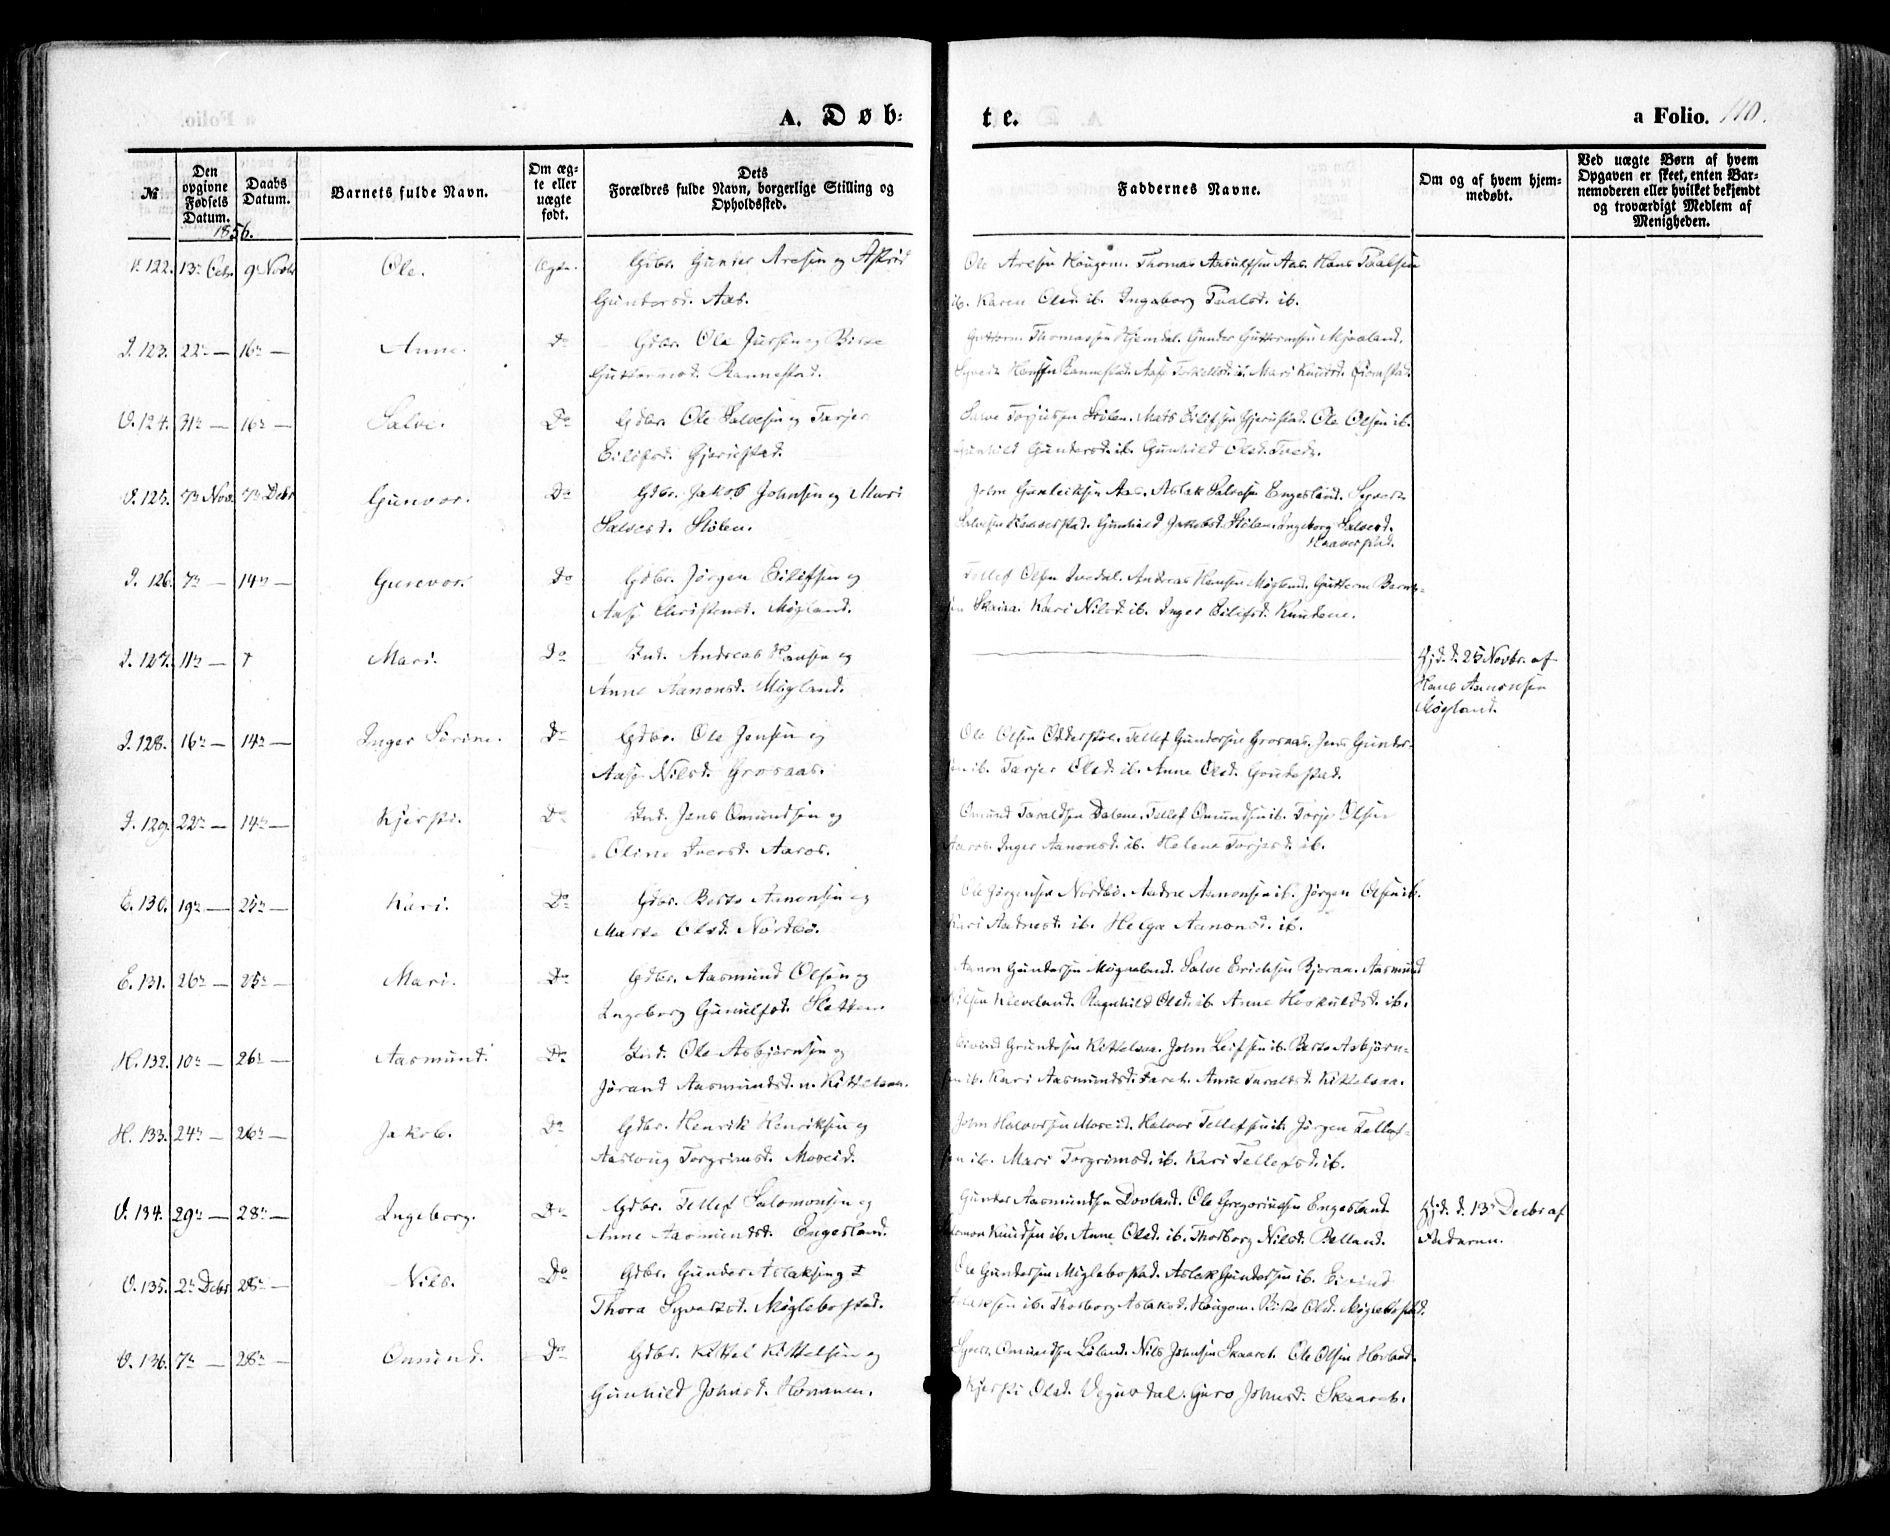 A. Døb-
te.
a Folio. 110.
№
Den opgivne Fødsels Datum.
Daabs Datum.
Barnets fulde Navn.
Om ægte eller uægte født.
Dets Forældres fulde Navn, borgerlige Stilling og Opholdssted.
Faddernes Navne.
Om og af hvem hjemmedøbt.
Ved uægte Børn af hvem Opgaven er skeet, enten Barnemoderen eller hvilket bekjendt og troværdigt Medlem af Menigheden.
1856.
V. 122. 13 9 Novbr Ole. Ægte. Gdbr. Gunder Aresen og
Gundersd. Aas.
Ole Aresen Hougom. Thomas Aasulfsen Aas. Hans
ib. Karen Olsd. ib. Ingeborg ib.
I. 123. 22 — 16 — Anne. Do Gdbr. Ole Jensen og Berte
Guttormsd. Rannestad.
Guttorm Thomassen Hjemdal. Gunder Guttormsen Mjaaland.
Rannestad. Aase ib. Mari Knutsd.
V. 124. 31 — 16 — Salve. Do Gdbr. Ole Salvesen og Tarjer
Eilifsd. Gjerustad.
Salve Torjussen Stölen. Mats Eilifsen Gjerustad. Ole Olsen ib.
Gunhild Gundersd. ib. Gunhild Olsd. Tvede.
V. 125. 7 Nov. 7 Debr Gunvor. Do Gdbr. Jakob Johnsen og Mari
Salvesd. Stölen.
John Gunleiksen Aas. Aslak Salvesen Engesland. Syvert
Salvesen Gunhild Jakobsd. Stölen. Ingeborg Salvesd.
I. 126. 7 — 14 — Gunvor. Do Gdbr. Jörgen Eilifsen og
Aase Christensd. Mögland.
Tellef Olsen Andreas Hansen Mögland. Guttorm
Kari Nilsd. ib. Inger Eilifsd. Knudene.
I. 127. 11 — † Mari. Do Ind. Andreas Hansen og
Anne Aanonsd. Mögland.
Hjd. d. 25 Novbr. af
Hans Aanonsen
Mögland.
I. 128. 16 — 14 — Inger Sörine. Do Gdbr. Ole Jensen og
Aase Nilsd. Grosaas.
Ole Olsen Tellef Gundersen Grosaas. Jens Gunder-
sen ib. Tarjer Olsd. ib. Anne Olsd.
I. 129. 22 — 14 — Kjersti. Do Ind. Jens Omundsen og
Oline Iversd. Aaros.
Omund Taraldsen Dalene. Tellef Omundsen ib. Torje Olsen
Aaros. Inger Aanonsd. ib. Helene Torjesd. ib.
E. 130. 19 — 25 — Kari. Do Gdbr. Aanonsen og
Marte Olsd. Nordbö.
Ole Jörgensen Nordbö. Aadne Aanonsen ib. Jörgen Olsen ib.
Kari Aadnesd. ib. Helga Aanonsd. ib.
E. 131. 26 — 25 — Mari. Do Gdbr. Aasmund Olsen og
Ingeborg Gunulfsd. Sletten.
Aanon Gundersen Salve Erichsen Bjoraa. Aasmund
Nilsen Ragnhild Olsd. ib. Anne ib.
H. 132. 10 — 26 — Aasmund. Do Ind. Ole Asbjörnsen og
Jörand Aasmundsd. n. Kittelsaa.
Eivind Kittelsaa. John Leifsen ib. Asbjörn-
sen ib. Kari Aasmundsd. Anne Taraldsd. Kittelsaa.
H. 133. 24 — 26 — Jakob. Do Gdbr. Henrik Henriksen og
Aaslaug Torgrimsd. Moseid.
John Halvorsen Moseid. Halvor Tellefsen ib. Jörgen Tellef-
sen ib. Mari Torgrimsd. ib. Kari Tellefsd. ib.
V. 134. 29 — 28 — Ingeborg. Do Gdbr. Tellef Salomonsen og
Anne Aasmundsd. Engesland.
Gunder Aasmundsen Dovland. Ole Gregoriusen Engesland.
Salomon Knudsen ib. Anne Olsd. ib. Thorborg Nilsd. Belland.
Hjd. d. 13 Decbr af
Faderen.
V. 135. 2 Debr 28 — Nils. Do Gdbr. Gunder Aslaksen og
Thora Syvertsd. Möglebostad.
Ole Gundersen Möglebostad. Aslak Gundersen ib. Eivind
Aslaksen ib. Thorborg Aslaksd. Hougom. Olsd. Möglebostad.
V. 136. 7 — 28 — Omund. Do Gdbr. Kittel Kittelsen og
Gunhild Johnsd. Hommen.
Syvert Omundsen Löland. Nils Johnsen Skaareh. Ole Olsen Hovland.
Kjersti Olsd. Vegusdal. Guro Johnsd. Skaareh.